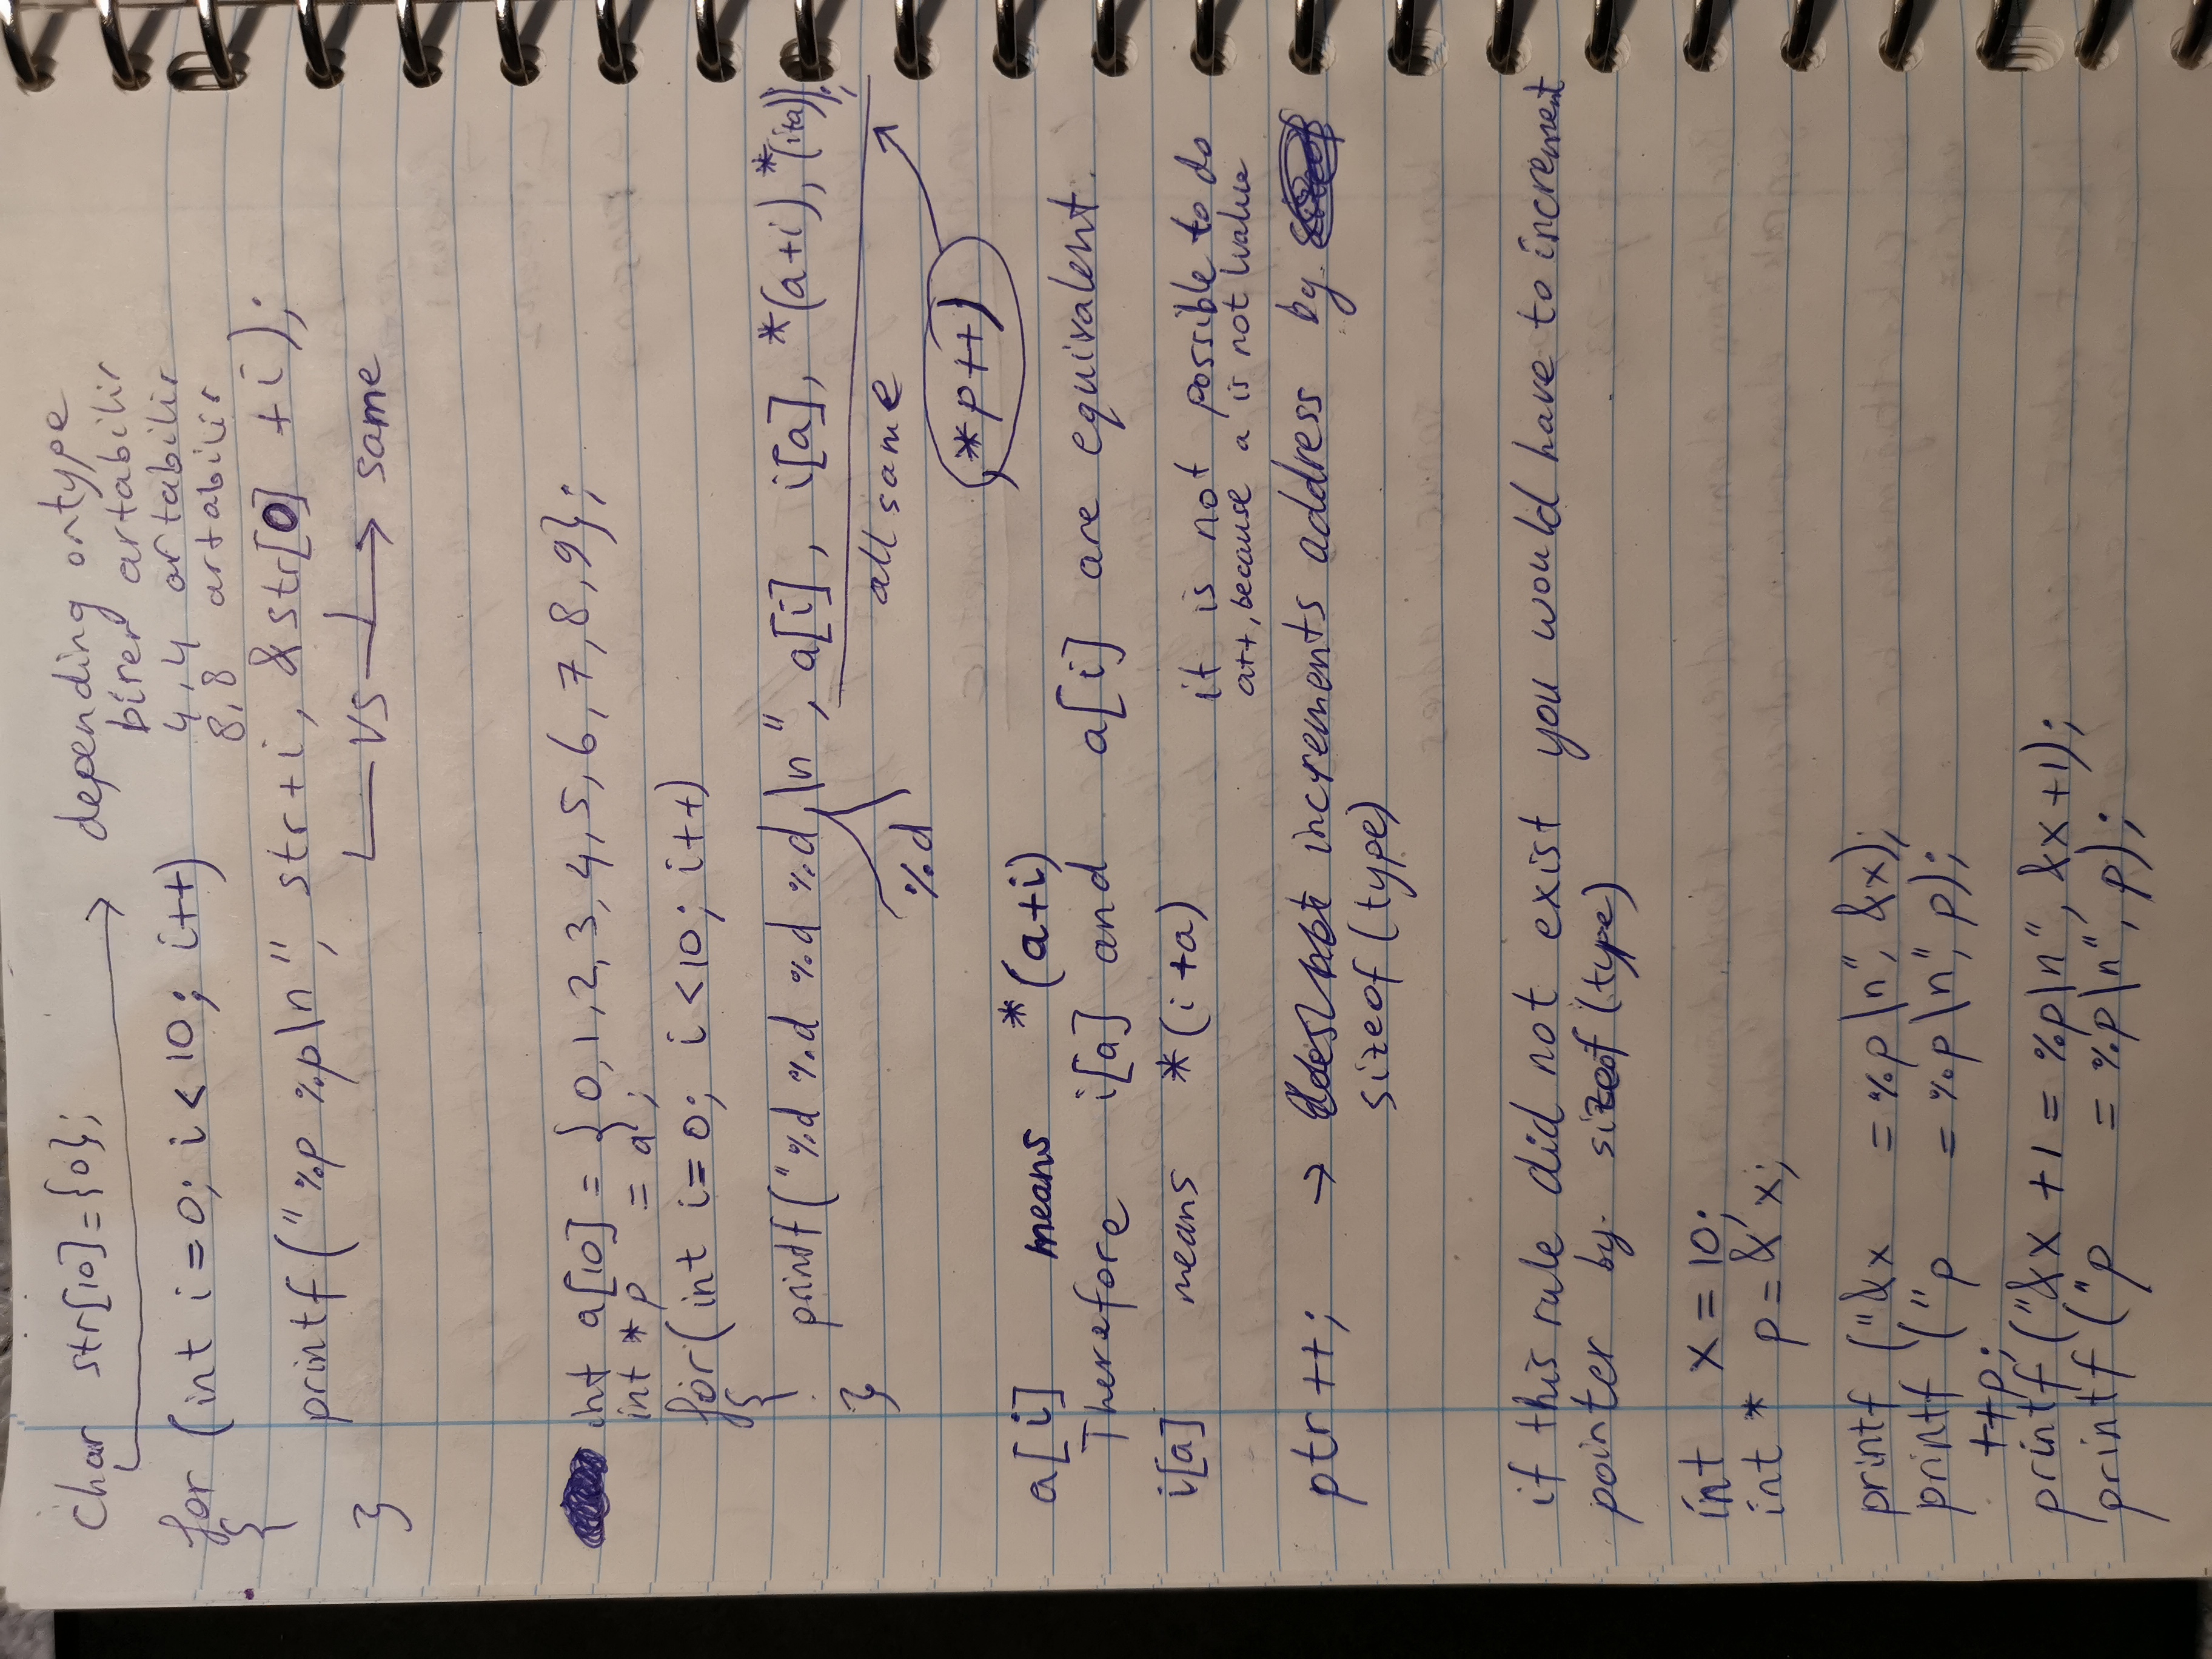 char str[10]={0}; → depending on type
birer artabilir
for (int i=0; i<10; i++) 4,4 artabilir
{ 8,8 artabilir
printf("%p %p\n", str+i, &str[0] +i);
} vs → same
int a[10] = {0,1,2,3,4,5,6,7,8,9};
int *p = a;
for(int i=0; i<10; i++)
{
printf("%d %d %d %d \n", a[i], i[a], *(a+i), *(i+a));
} all same
%d
, *p++)
a[i] means *(a+i)
Therefore i[a] and a[i] are equivalent.
i[a] means *(i+a)
it is not possible to do
a++, because a is not lvalue
ptr++; → increments address by
sizeof(type)
if this rule did not exist you would have to increment
pointer by sizeof(type)
int x = 10;
int * p = &x;
printf ("&x = %p\n", &x);
printf ("p = %p\n", p);
++p;
printf("&x +1 = %p\n", &x+1);
printf ("p = %p\n", p);